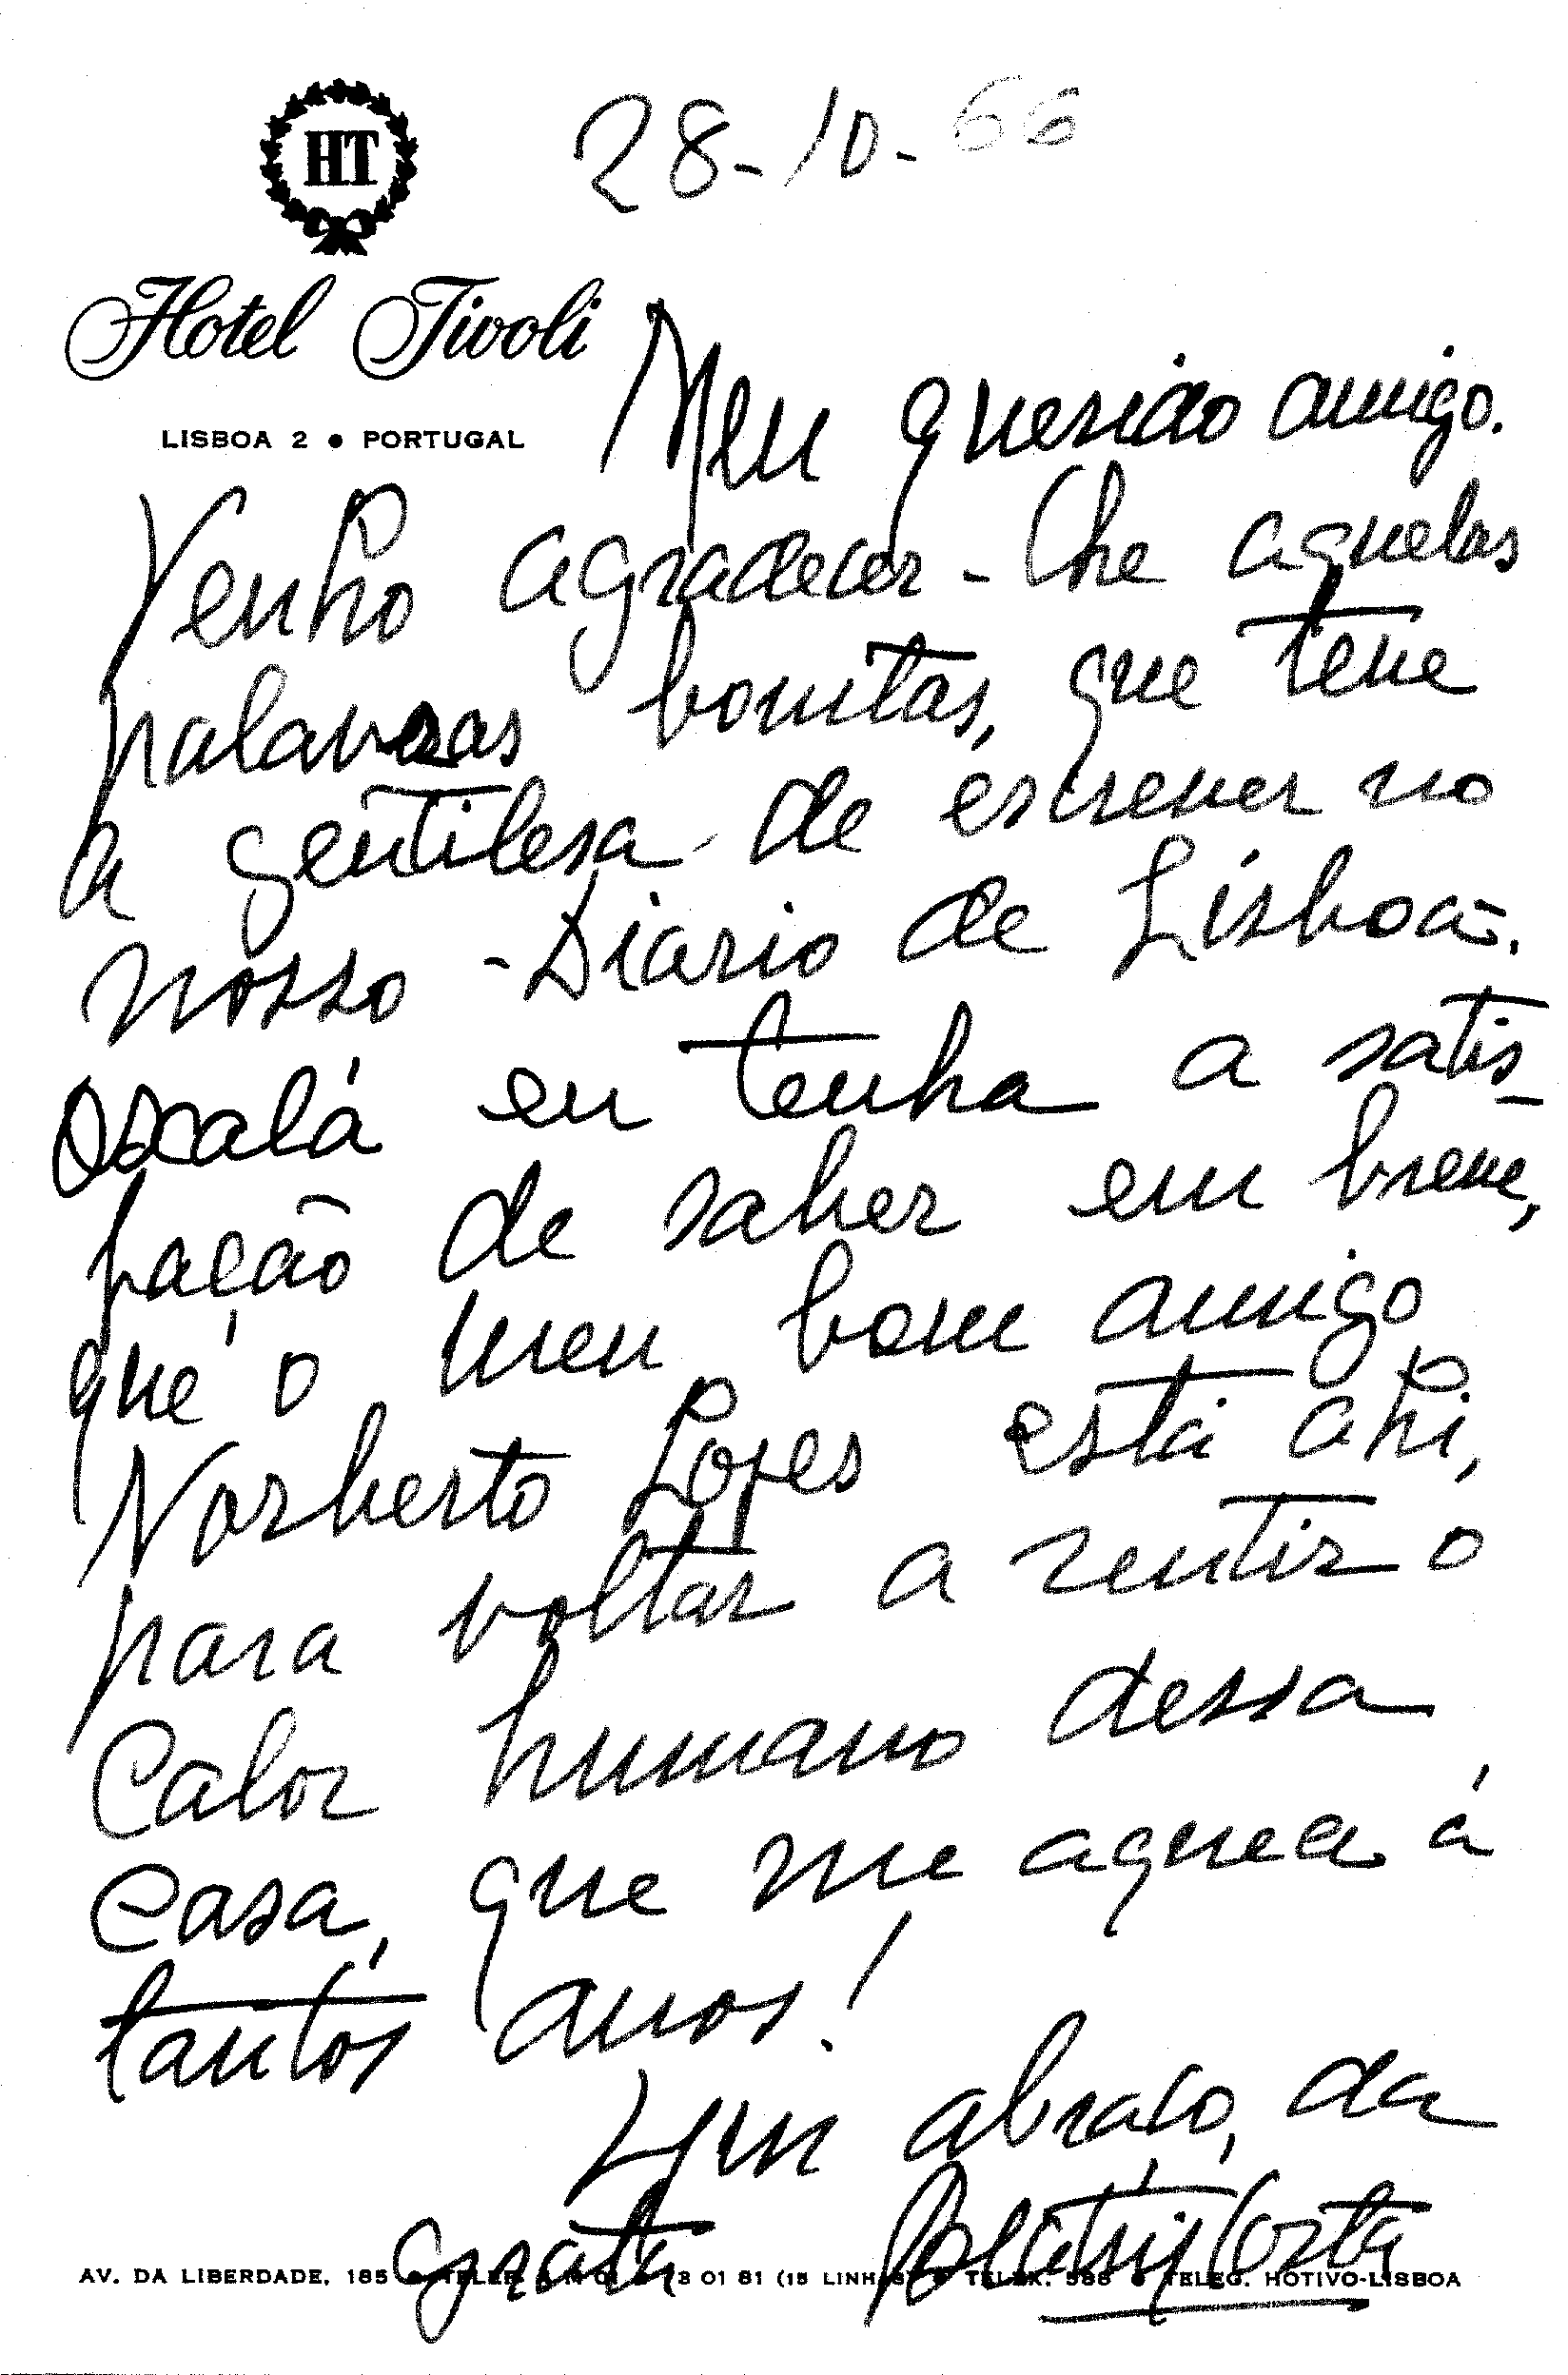 HT
28-10-66
Hotel Tivoli
LISBOA 2 ● PORTUGAL
Meu querido amigo.
Venho agradecer-lhe aquelas
palavras bonitas, que teve
a gentilesa de escrever no
nosso -Diario de Lisboa-.
Oxalá eu tenha a satis-
fação de saber em breve,
que o meu bom amigo
Norberto Lopes está ahi,
para voltar a sentir o
Calor humano dessa
Casa, que me aquece á
tantos anos!
Um abraço, da
grata Beatriz Costa
AV. DA LIBERDADE, 185 ● 3 01 81 (15 LINHAS) ● TELEX. 588 ● TELEG. HOTIVO-LISBOA